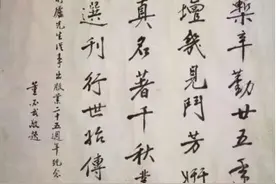 槧辛勤廿五
壇幾見鬥芳妍
真名著千秋業
選刊行世貽傳
先生從事出版業二十五週年紀念
董敬題